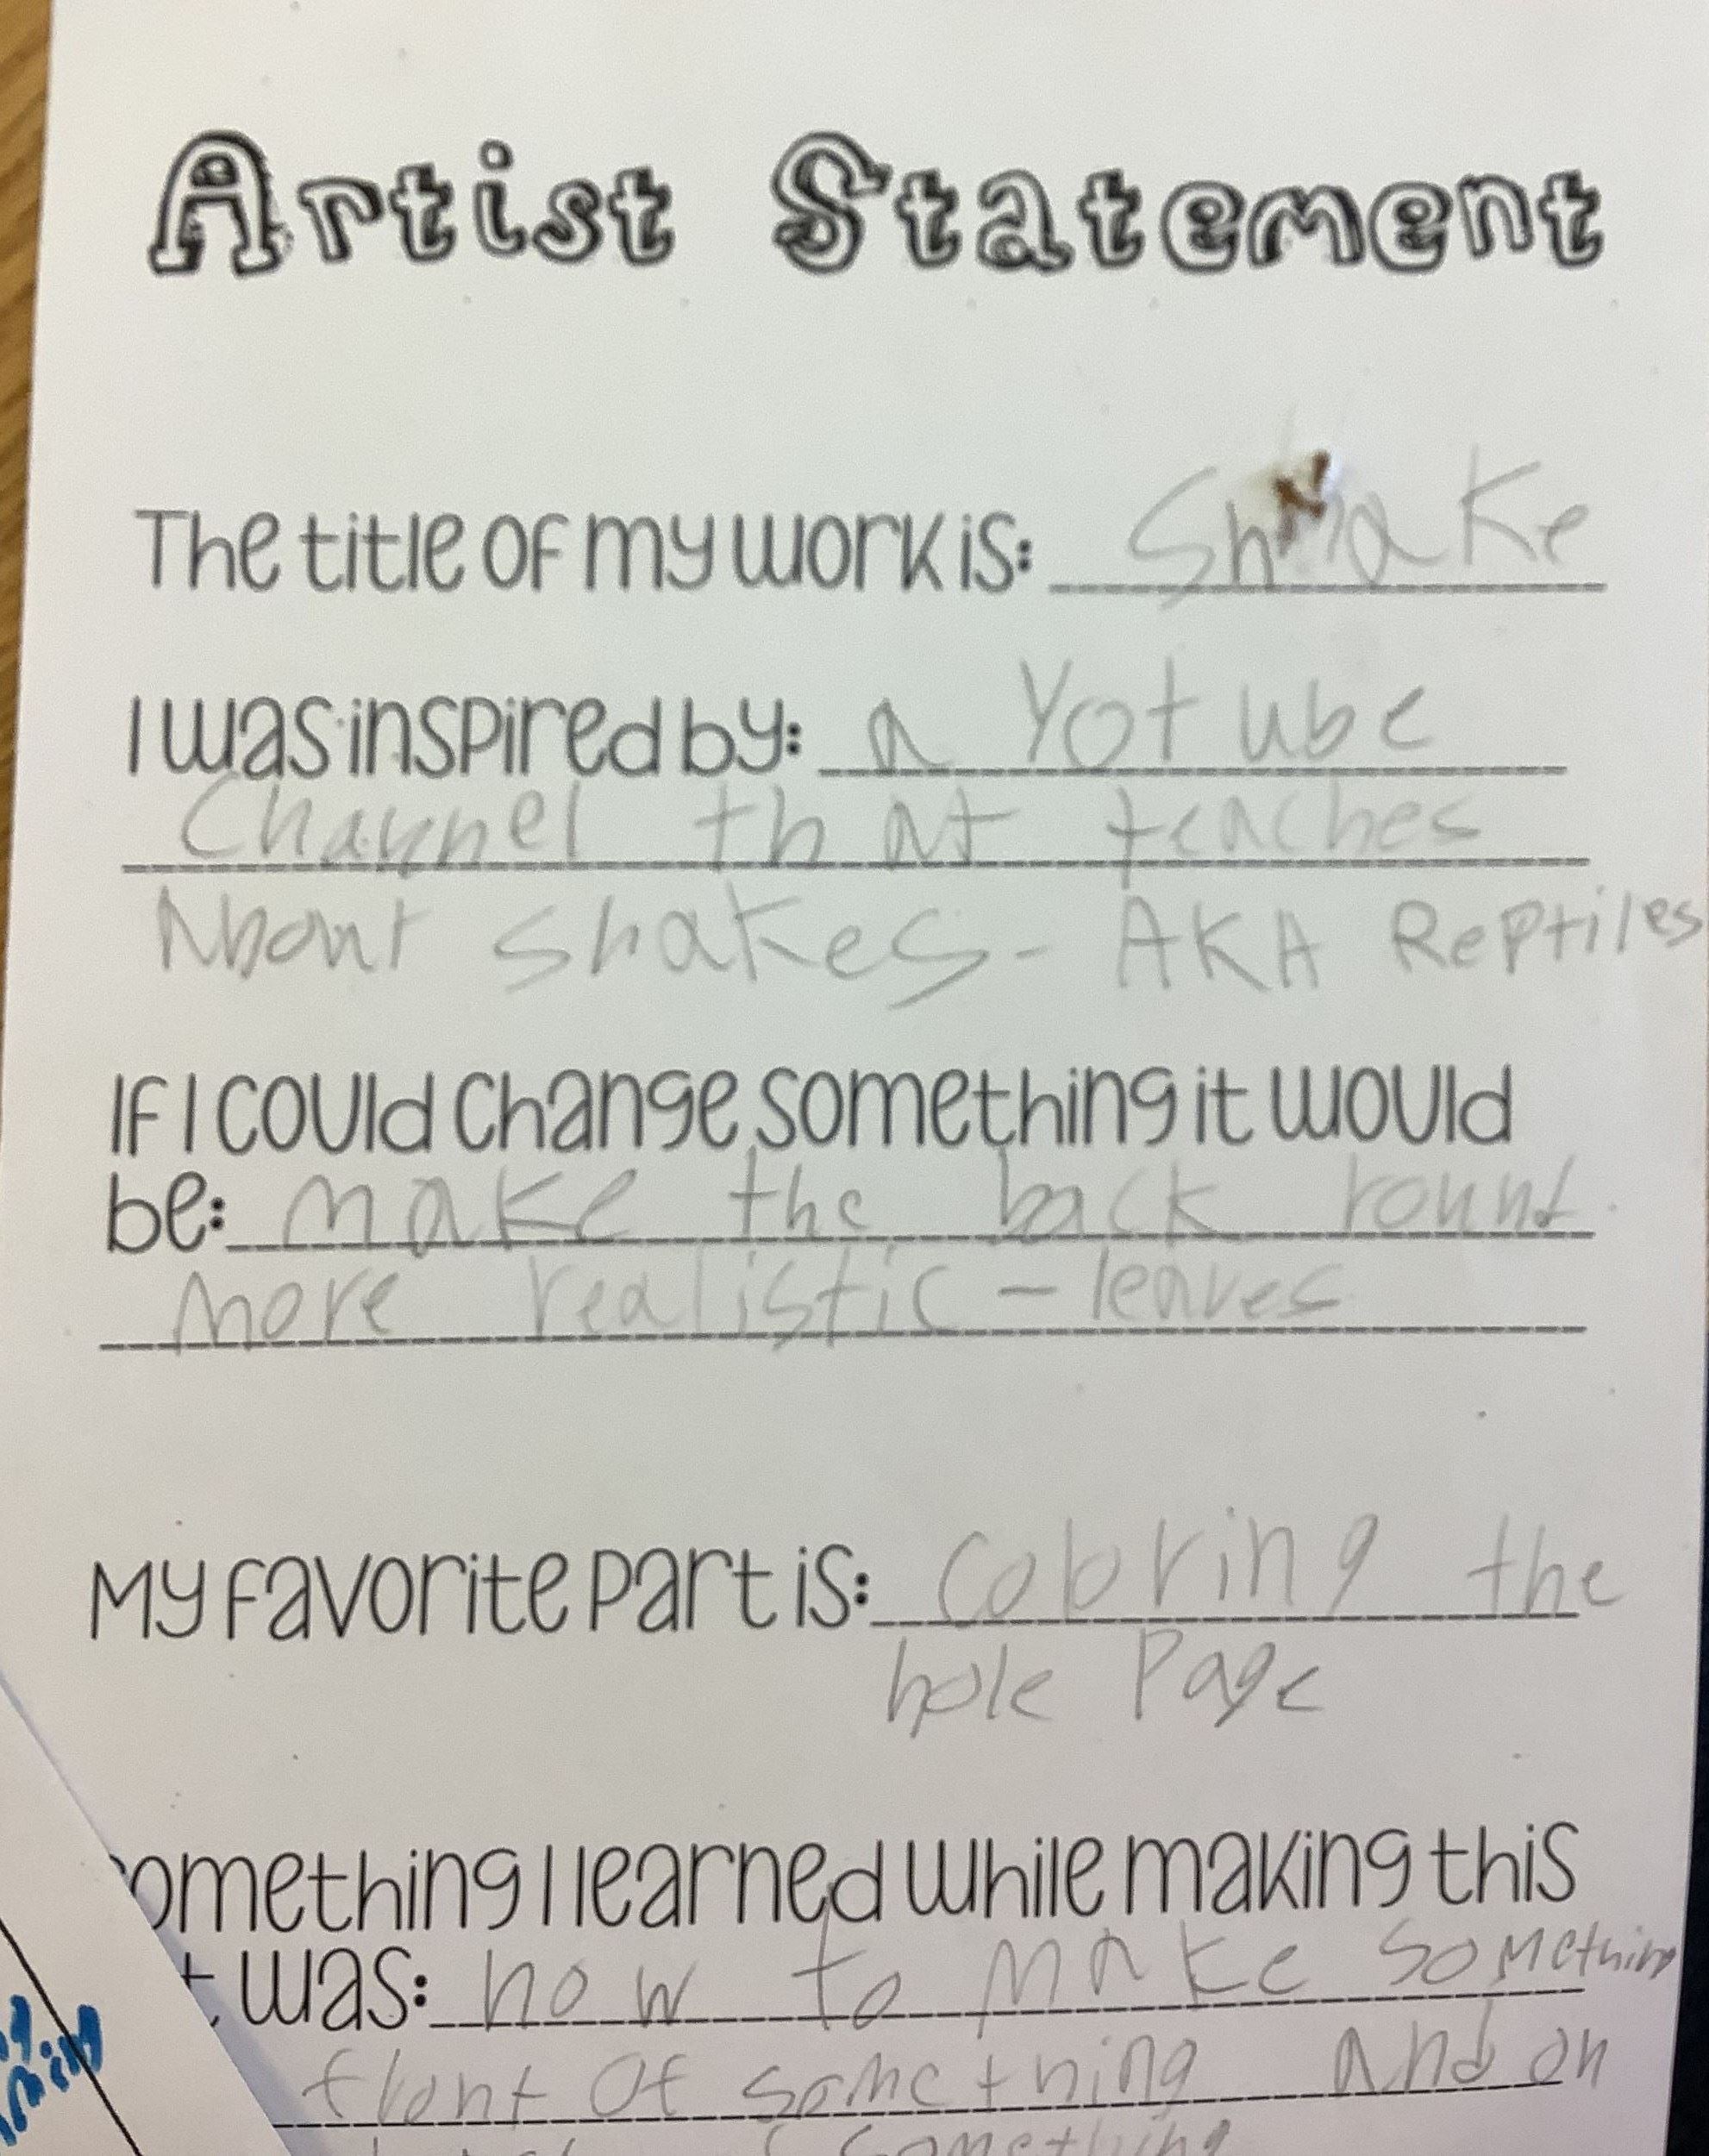 Artist Statement
The title of my work is: Snake
I was inspired by: a Yotube
Channel that teaches
About snakes- AKA Reptiles
If I could change something it would
be: make the back round
more realistic - leaves
My favorite part is: coloring the
hole Page
omething I learned while making this
t was: how to make something
front of something and on
something